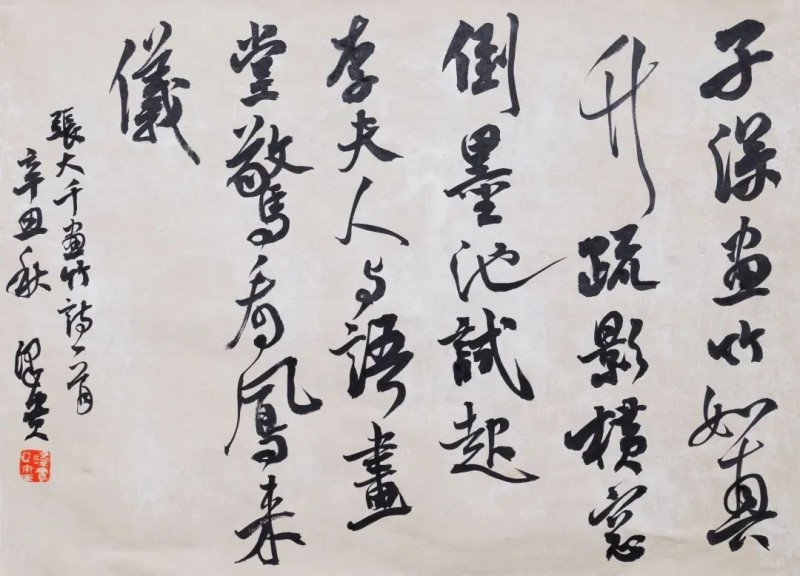 子深画竹如真
竹疏影横窗
倒墨池試起
李夫人与語畫
堂驚看鳳来
儀
張大千画竹詩一首
辛丑秋